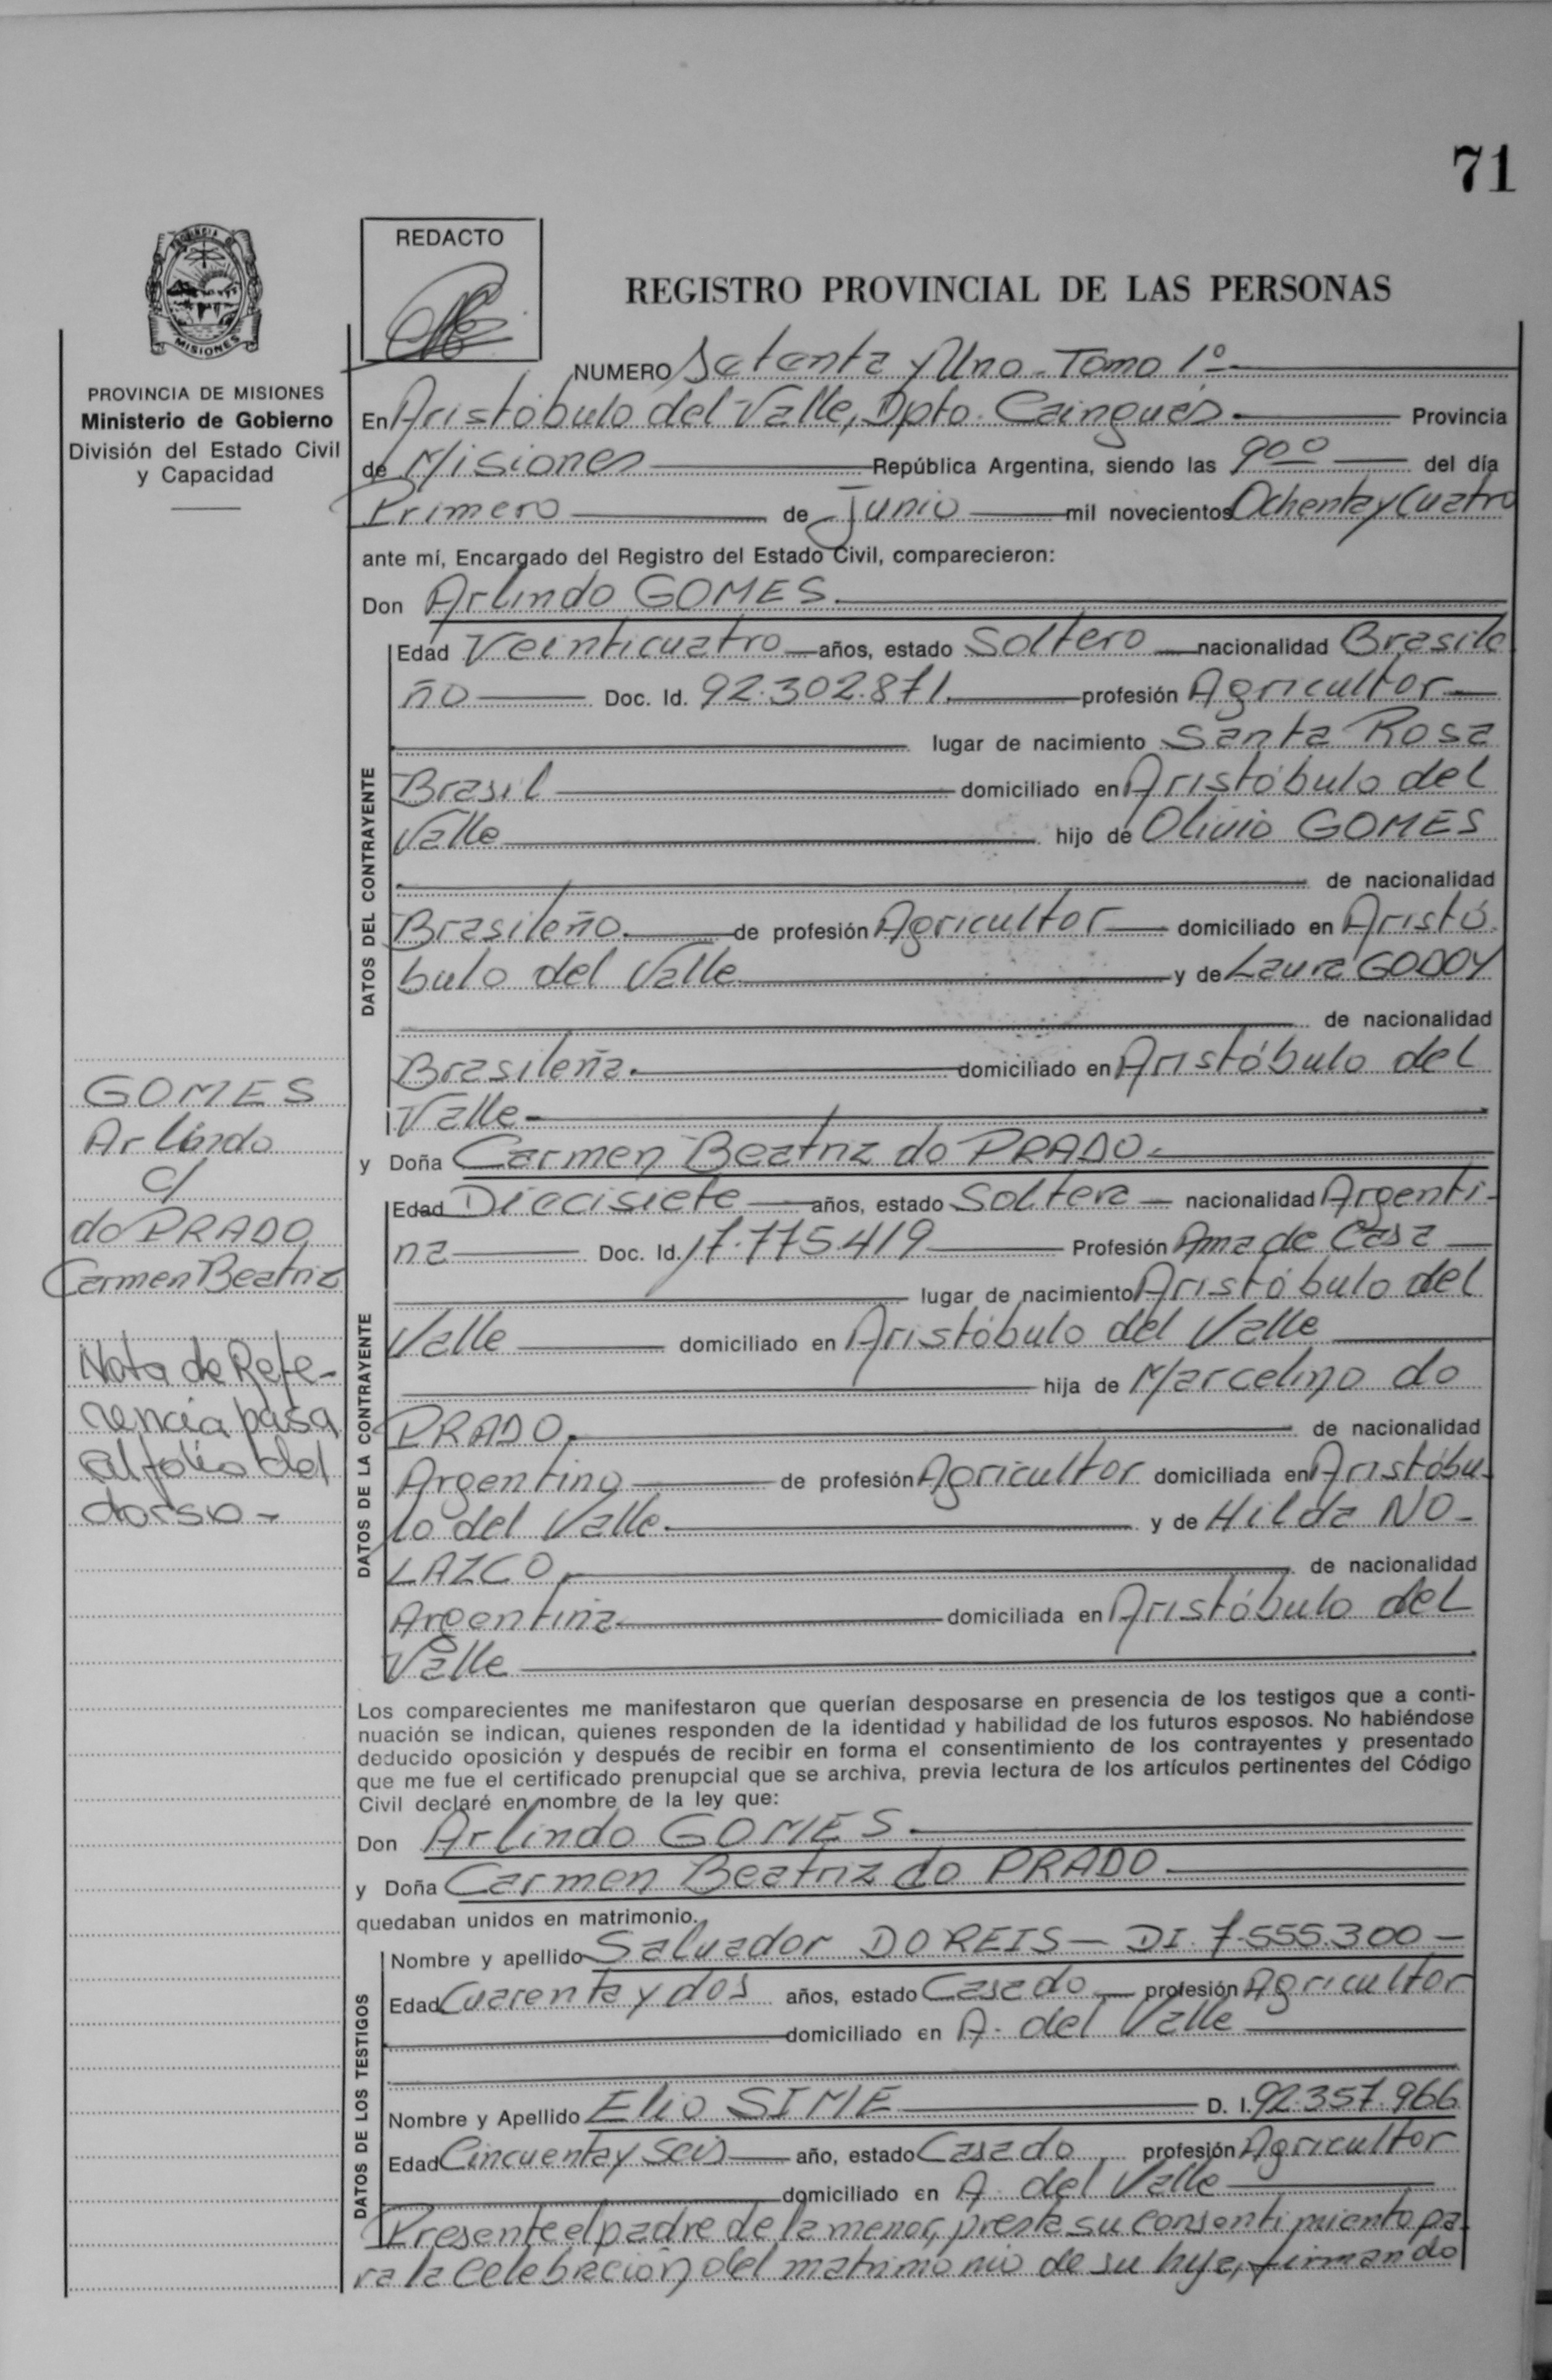 71
PROVINCIA DE
MISIONES
REDACTO
REGISTRO PROVINCIAL DE LAS PERSONAS
PROVINCIA DE MISIONES
Ministerio de Gobierno
División del Estado Civil
y Capacidad
NUMERO Setenta y Uno. Tomo 1º
En Aristóbulo del Valle, Dpto. Cainguás. Provincia
de Misiones República Argentina, siendo las 9ºº del día
Primero de Junio mil novecientos Ochenta y Cuatro
ante mí, Encargado del Registro del Estado Civil, comparecieron:
Don Arlindo GOMES.
DATOS DEL CONTRAYENTE
Edad Veinticuatro años, estado Soltero nacionalidad Brasile
ño Doc. Id. 92.302.871. profesión Agricultor
lugar de nacimiento Santa Rosa
Brasil domiciliado en Aristóbulo del
Valle hijo de Olivio GOMES
de nacionalidad
Brasileño. de profesión Agricultor domiciliado en Aristó
bulo del Valle y de Laura GODOY
de nacionalidad
Brasileña. domiciliado en Aristóbulo del
Valle
y Doña Carmen Beatriz do PRADO.
DATOS DE LA CONTRAYENTE
Edad Diecisiete años, estado Soltera nacionalidad Argenti-
na Doc. Id. 17.775.419 Profesión Ama de Casa
lugar de nacimiento Aristóbulo del
Valle domiciliado en Aristóbulo del Valle
hija de Marcelino do
PRADO. de nacionalidad
Argentino de profesión Agricultor domiciliada en Aristóbu-
lo del Valle. y de Hilda NO-
LAZCO. de nacionalidad
Argentina. domiciliada en Aristóbulo del
Valle
GOMES
Arlindo
c/
do PRADO
Carmen Beatriz
Nota de Refe-
rencia pasa
al folio del
dorso-
Los comparecientes me manifestaron que querían desposarse en presencia de los testigos que a conti-
nuación se indican, quienes responden de la identidad y habilidad de los futuros esposos. No habiéndose
deducido oposición y después de recibir en forma el consentimiento de los contrayentes y presentado
que me fue el certificado prenupcial que se archiva, previa lectura de los artículos pertinentes del Código
Civil declaré en nombre de la ley que:
Don Arlindo GOMES.
y Doña Carmen Beatriz do PRADO
quedaban unidos en matrimonio.
DATOS DE LOS TESTIGOS
Nombre y apellido Salvador DOREIS- DI. 7.555.300-
Edad Cuarenta y dos años, estado Casado profesión Agricultor
domiciliado en A. del Valle
Nombre y Apellido Elio SIME D. I. 92.357.966
Edad Cincuenta y Seis año, estado Casado profesión Agricultor
domiciliado en A. del Valle
Presente el padre de la menor, presta su consentimiento pa-
ra la celebración del matrimonio de su hija, firmando